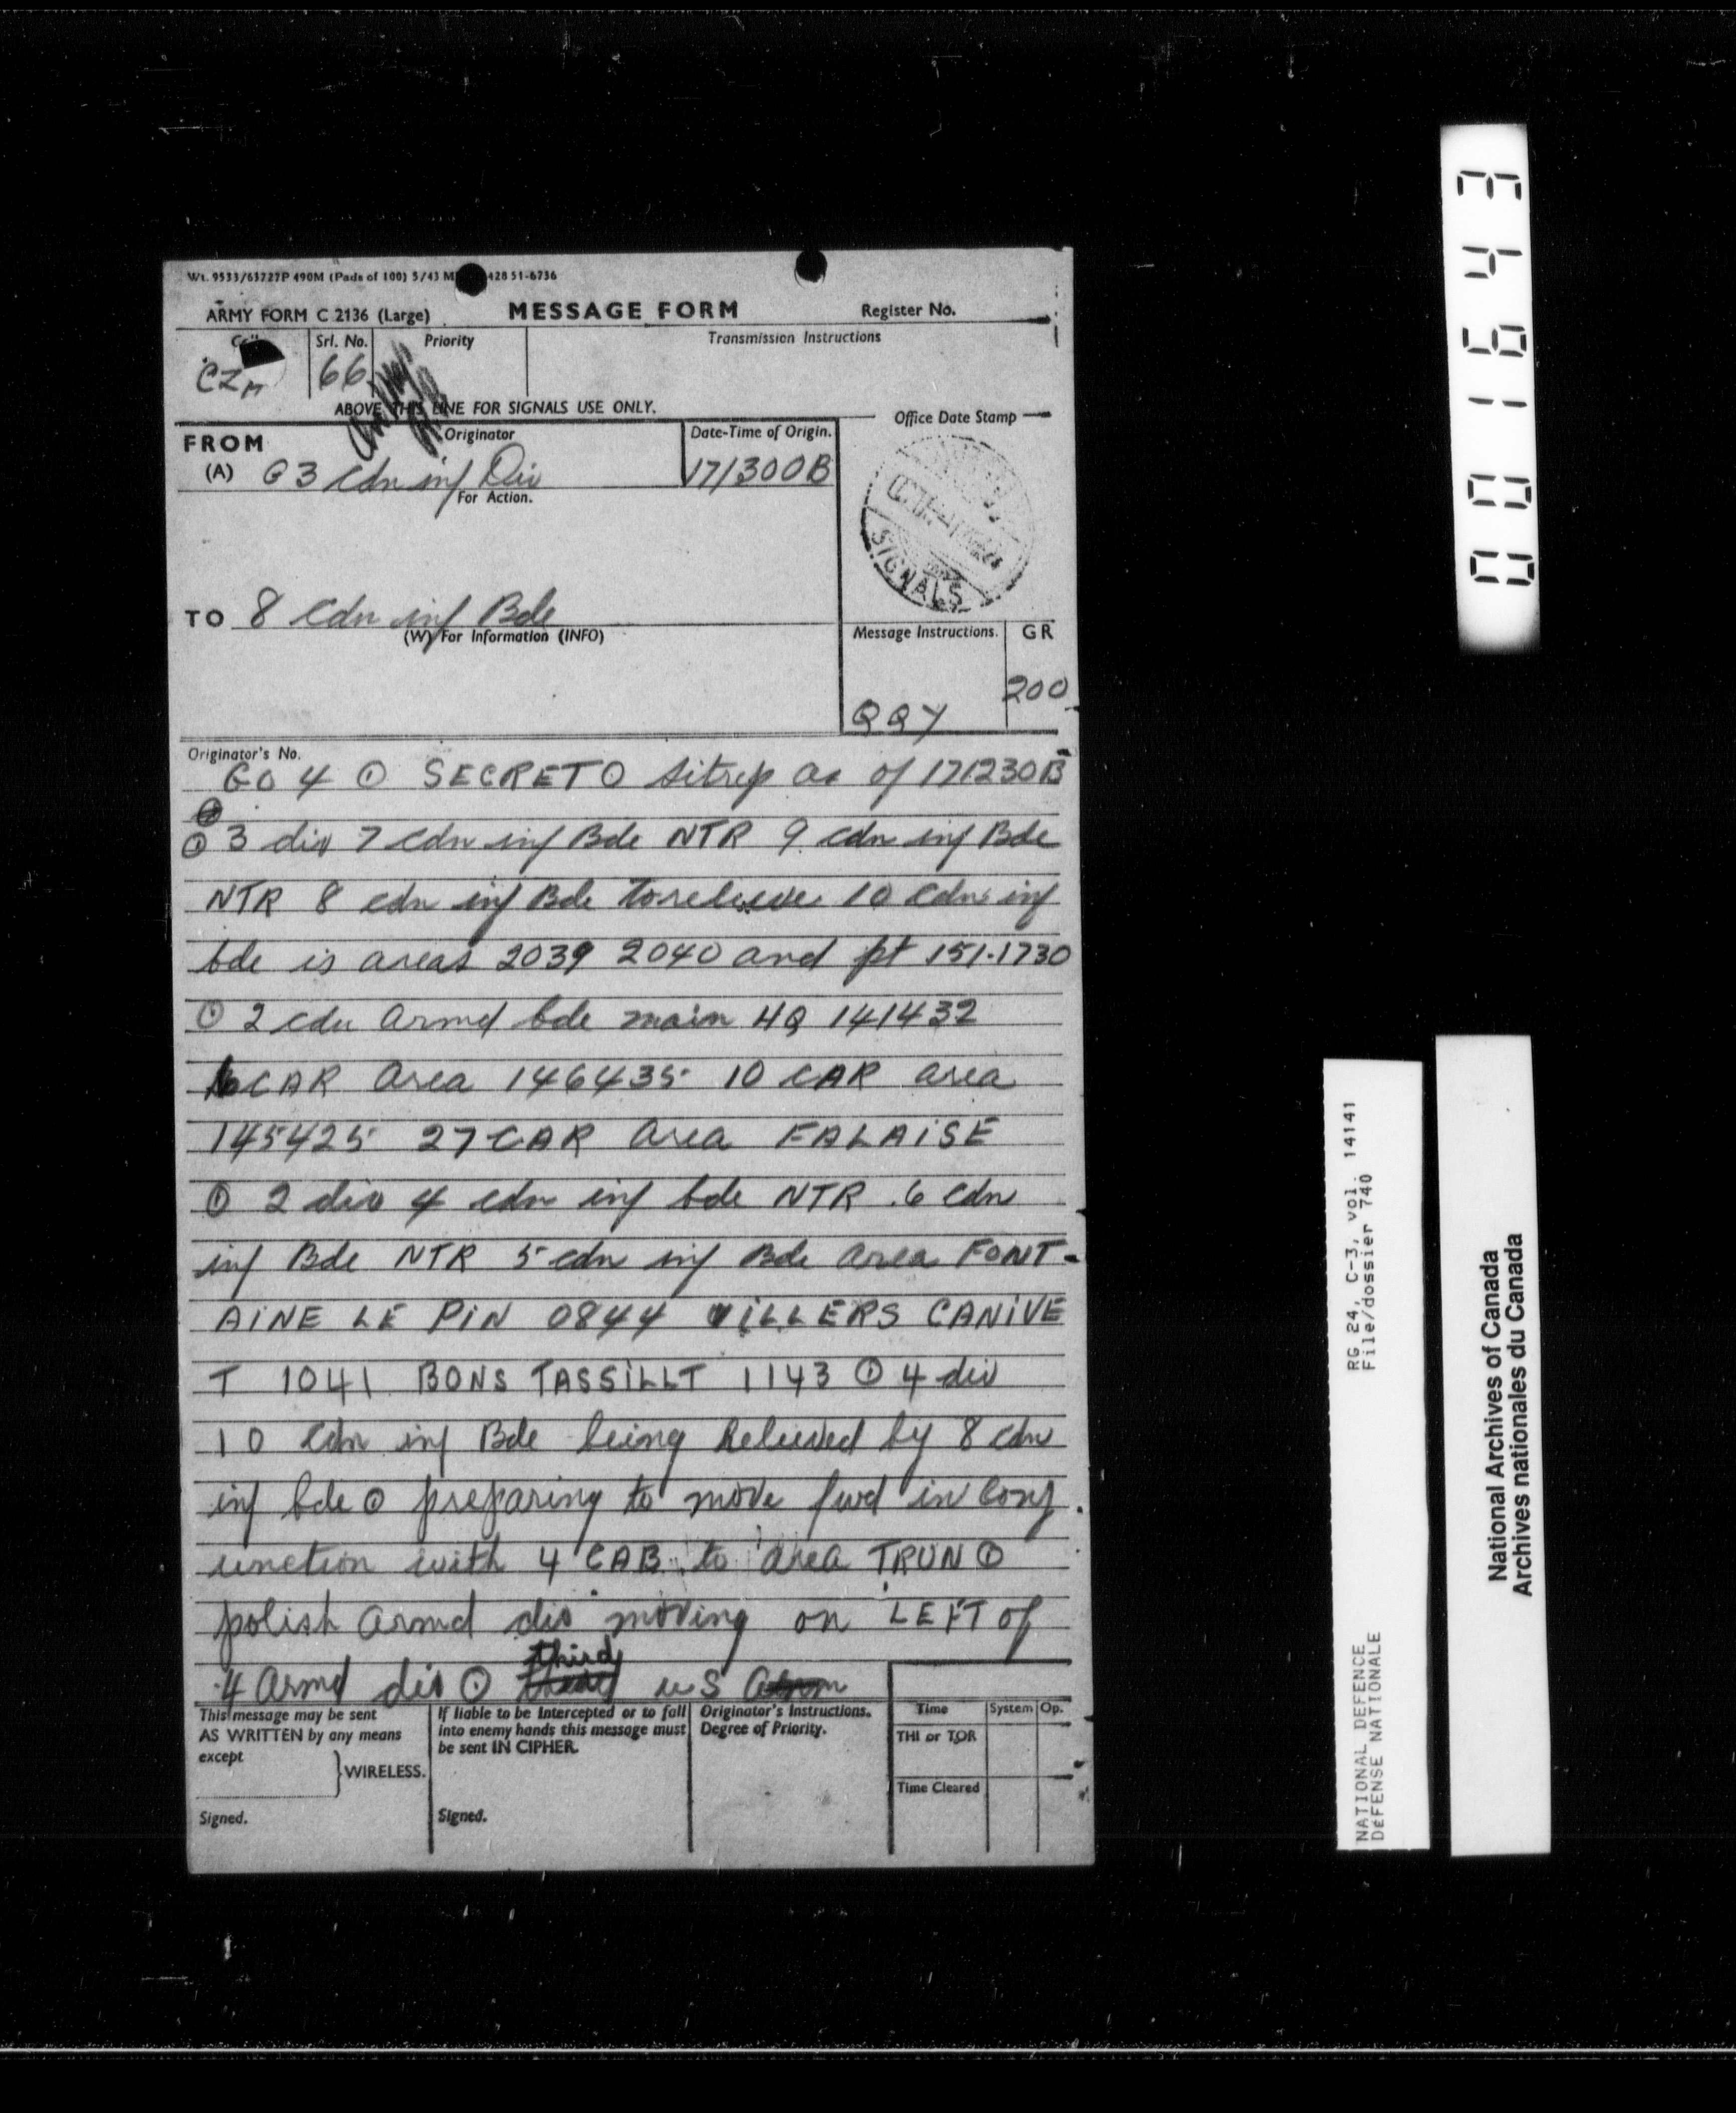 Wt. 9533/63727P 490M (Pads of 100) 5/43 M 428 51-6736
ARMY FORM C 2136 (Large) MESSAGE FORM Register No.
Srl. No. Priority Transmission Instructions
CZM 66
ABOVE THIS LINE FOR SIGNALS USE ONLY.
Office Date Stamp
FROM Originator Date-Time of Origin.
(A) G 3 Cdn inf Div 171300B
For Action.
SIGNALS
TO 8 Cdn inf Bde
(W) For Information (INFO) Message Instructions. GR
QQY 200
Originator's No.
GO 4 ⊙ SECRET ⊙ sitrep as of 171230B
⊙ 3 div 7 Cdn inf Bde NTR 9 Cdn inf Bde
NTR 8 cdn inf Bde to relieve 10 Cdn inf
bde is areas 2039 2040 and pt 151.1730
⊙ 2 cdn armd bde main HQ 141432
6 CAR area 146435 10 CAR area
145425 27 CAR area FALAISE
⊙ 2 div 4 cdn inf bde NTR 6 Cdn
inf Bde NTR 5 cdn inf Bde area FONT-
AINE LE PIN 0844 VILLERS CANIVE
T 1041 BONS TASSILLT 1143 ⊙ 4 div
10 Cdn inf Bde being Relieved by 8 cdn
inf bde ⊙ preparing to move fwd in Conj
unction with 4 CAB to area TRUN ⊙
polish Armd div moving on LEFT of
third
4 Armd div ⊙ US
This message may be sent
AS WRITTEN by any means
except
WIRELESS.
Signed.
If liable to be Intercepted or to fall
into enemy hands this message must
be sent IN CIPHER.
Signed.
Originator's Instructions.
Degree of Priority.
Time System Op.
THI or TOR
Time Cleared
001643
RG 24, C-3, vol. 14141
File/dossier 740
NATIONAL DEFENCE
DÉFENSE NATIONALE
National Archives of Canada
Archives nationales du Canada